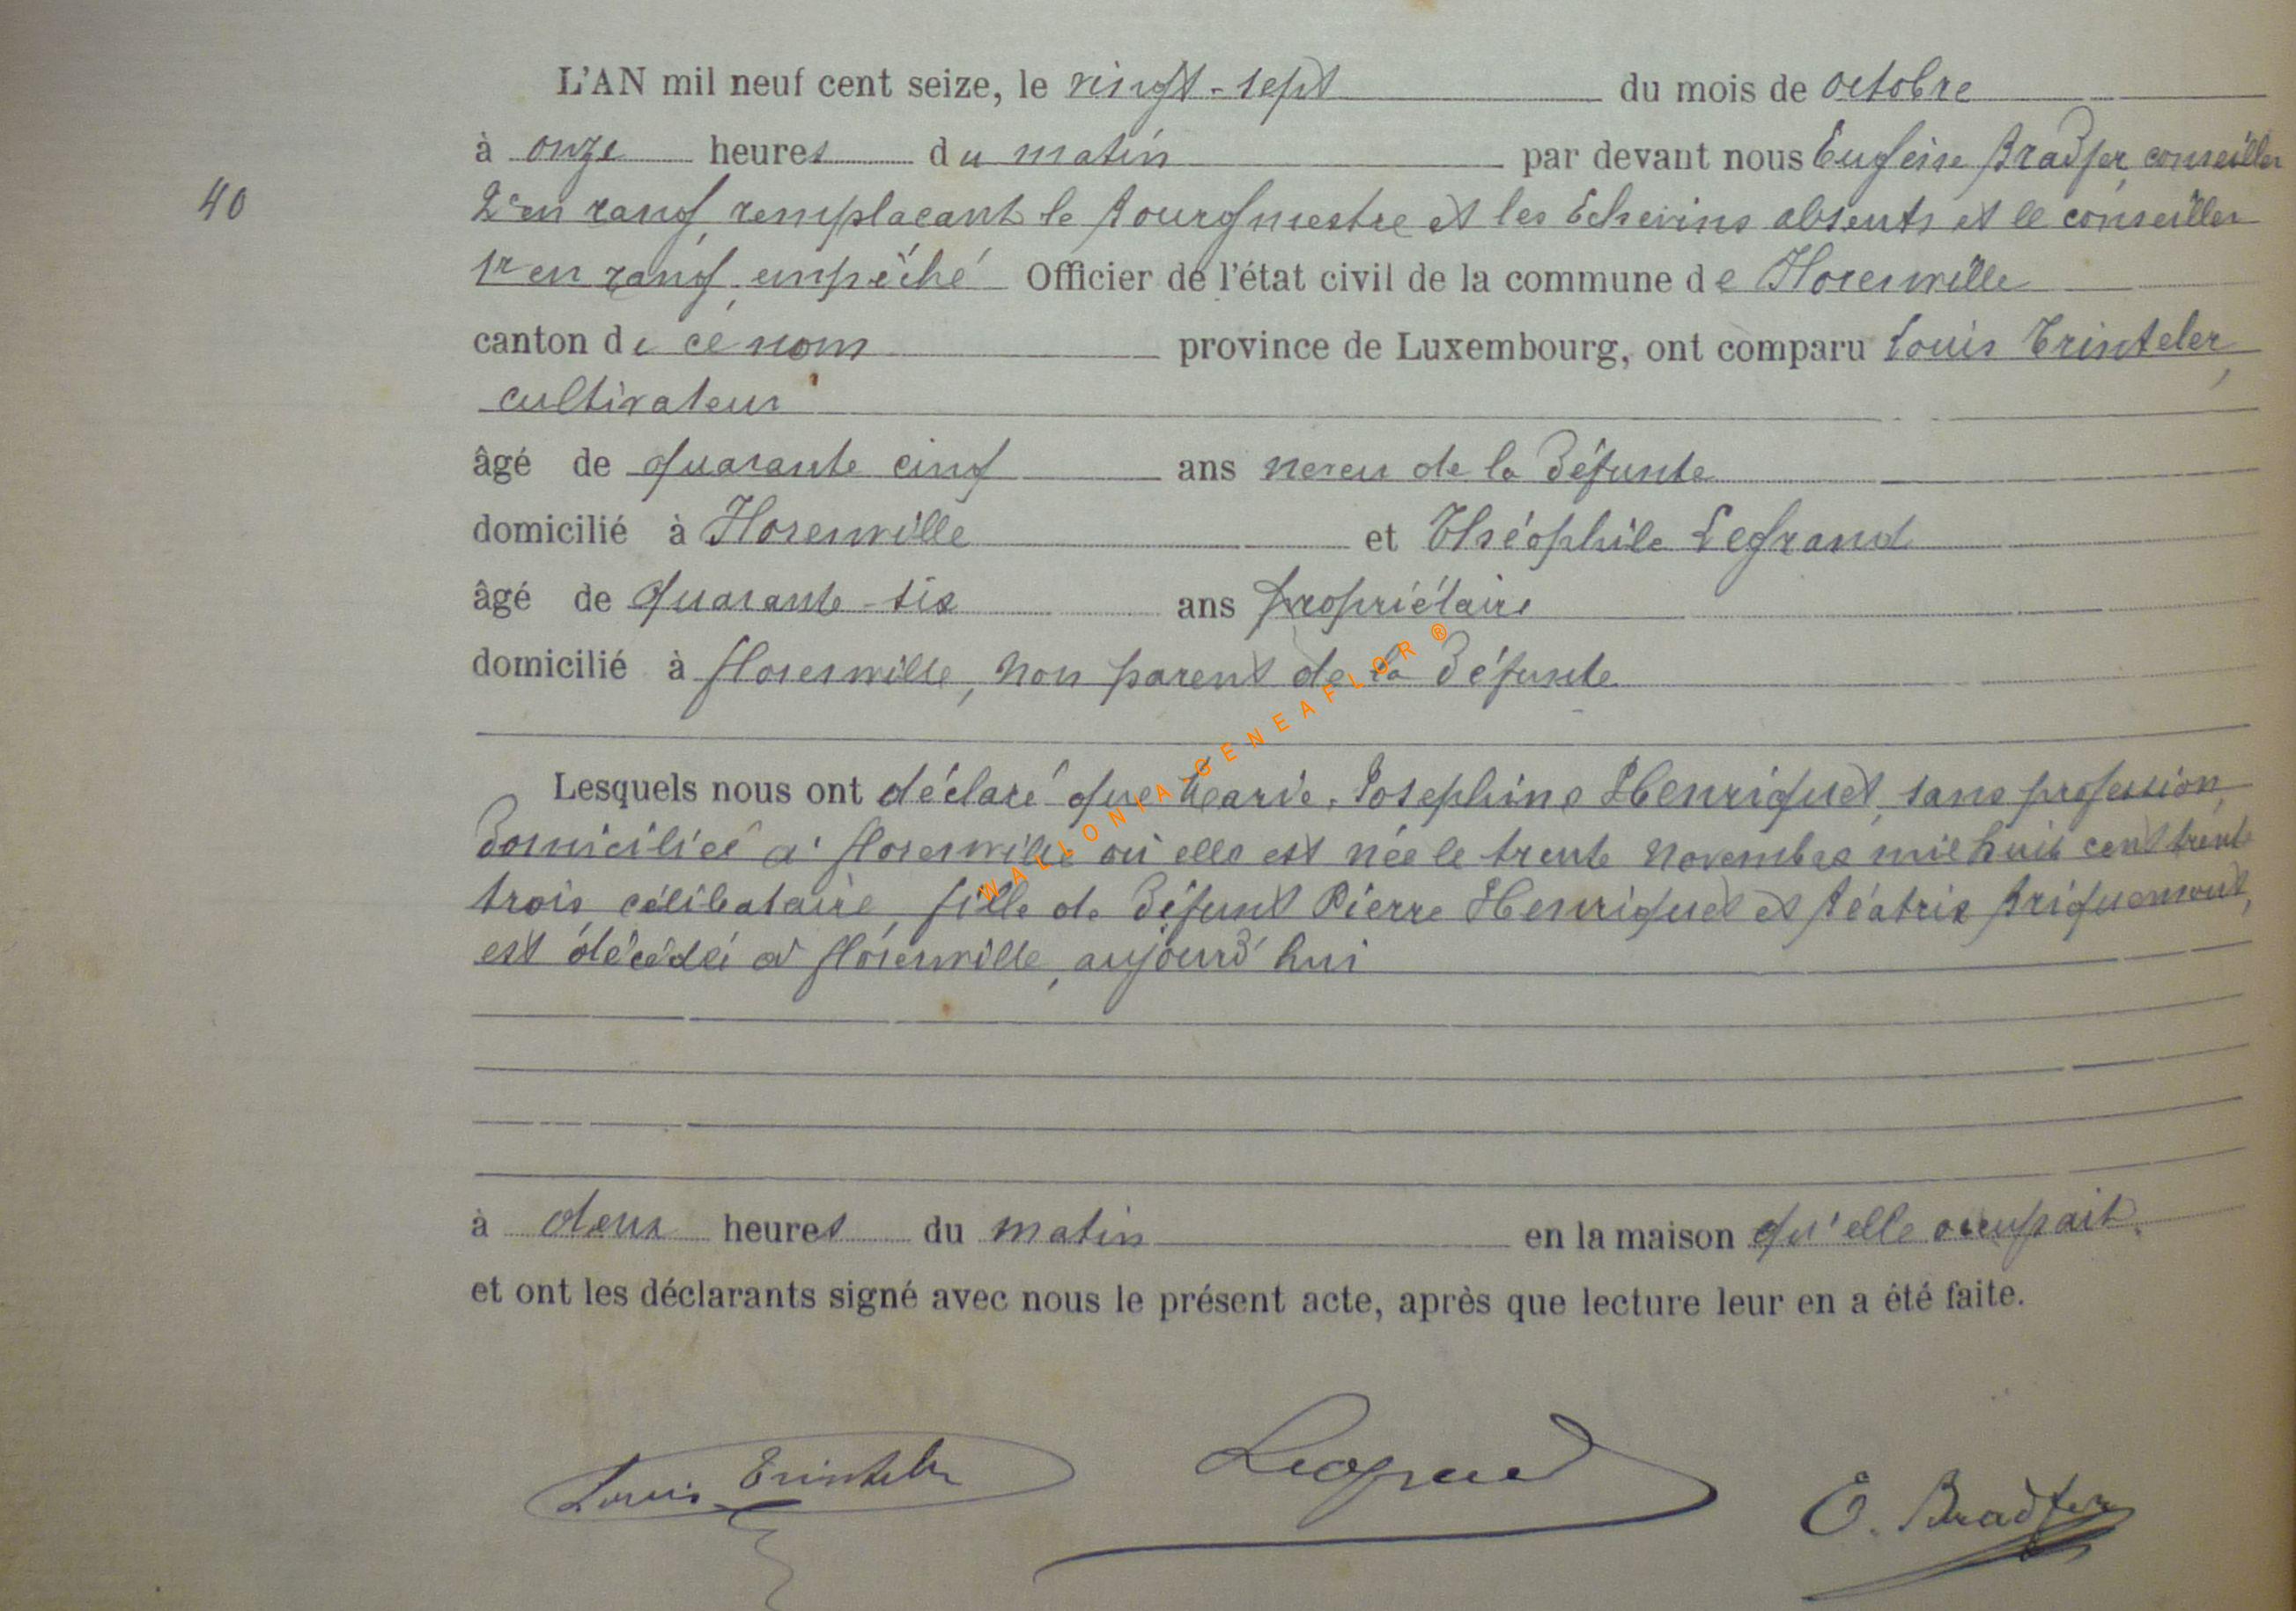 L'AN mil neuf cent seize, le vingt-sept du mois de octobre
à onze heures du matin par devant nous Eugène Bradfer, conseiller
40
2e en rang, remplaçant le Bourgmestre et les Echevins absents et le conseiller
1r en rang, empêché Officier de l'état civil de la commune de Florenville
canton de ce nom province de Luxembourg, ont comparu Louis Trinteler,
cultivateur
âgé de quarante cinq ans neveu de la défunte
domicilié à Florenville et Théophile Legrand
âgé de quarante-six ans propriétaire
domicilié à Florenville, non parent de la défunte
WALLONIA-GENEAFLOR ®
Lesquels nous ont déclaré que Marie, Josephine Henriquet, sans profession,
domiciliée à Florenville où elle est née le trente novembre mil huit cent trente
trois, célibataire, fille de défunt Pierre Henriquet et Béatrix Briquemont,
est décédée à Florenville, aujourd'hui
à deux heures du matin en la maison qu'elle occupait.
et ont les déclarants signé avec nous le présent acte, après que lecture leur en a été faite.
Louis Trinteler Legrand E. Bradfer